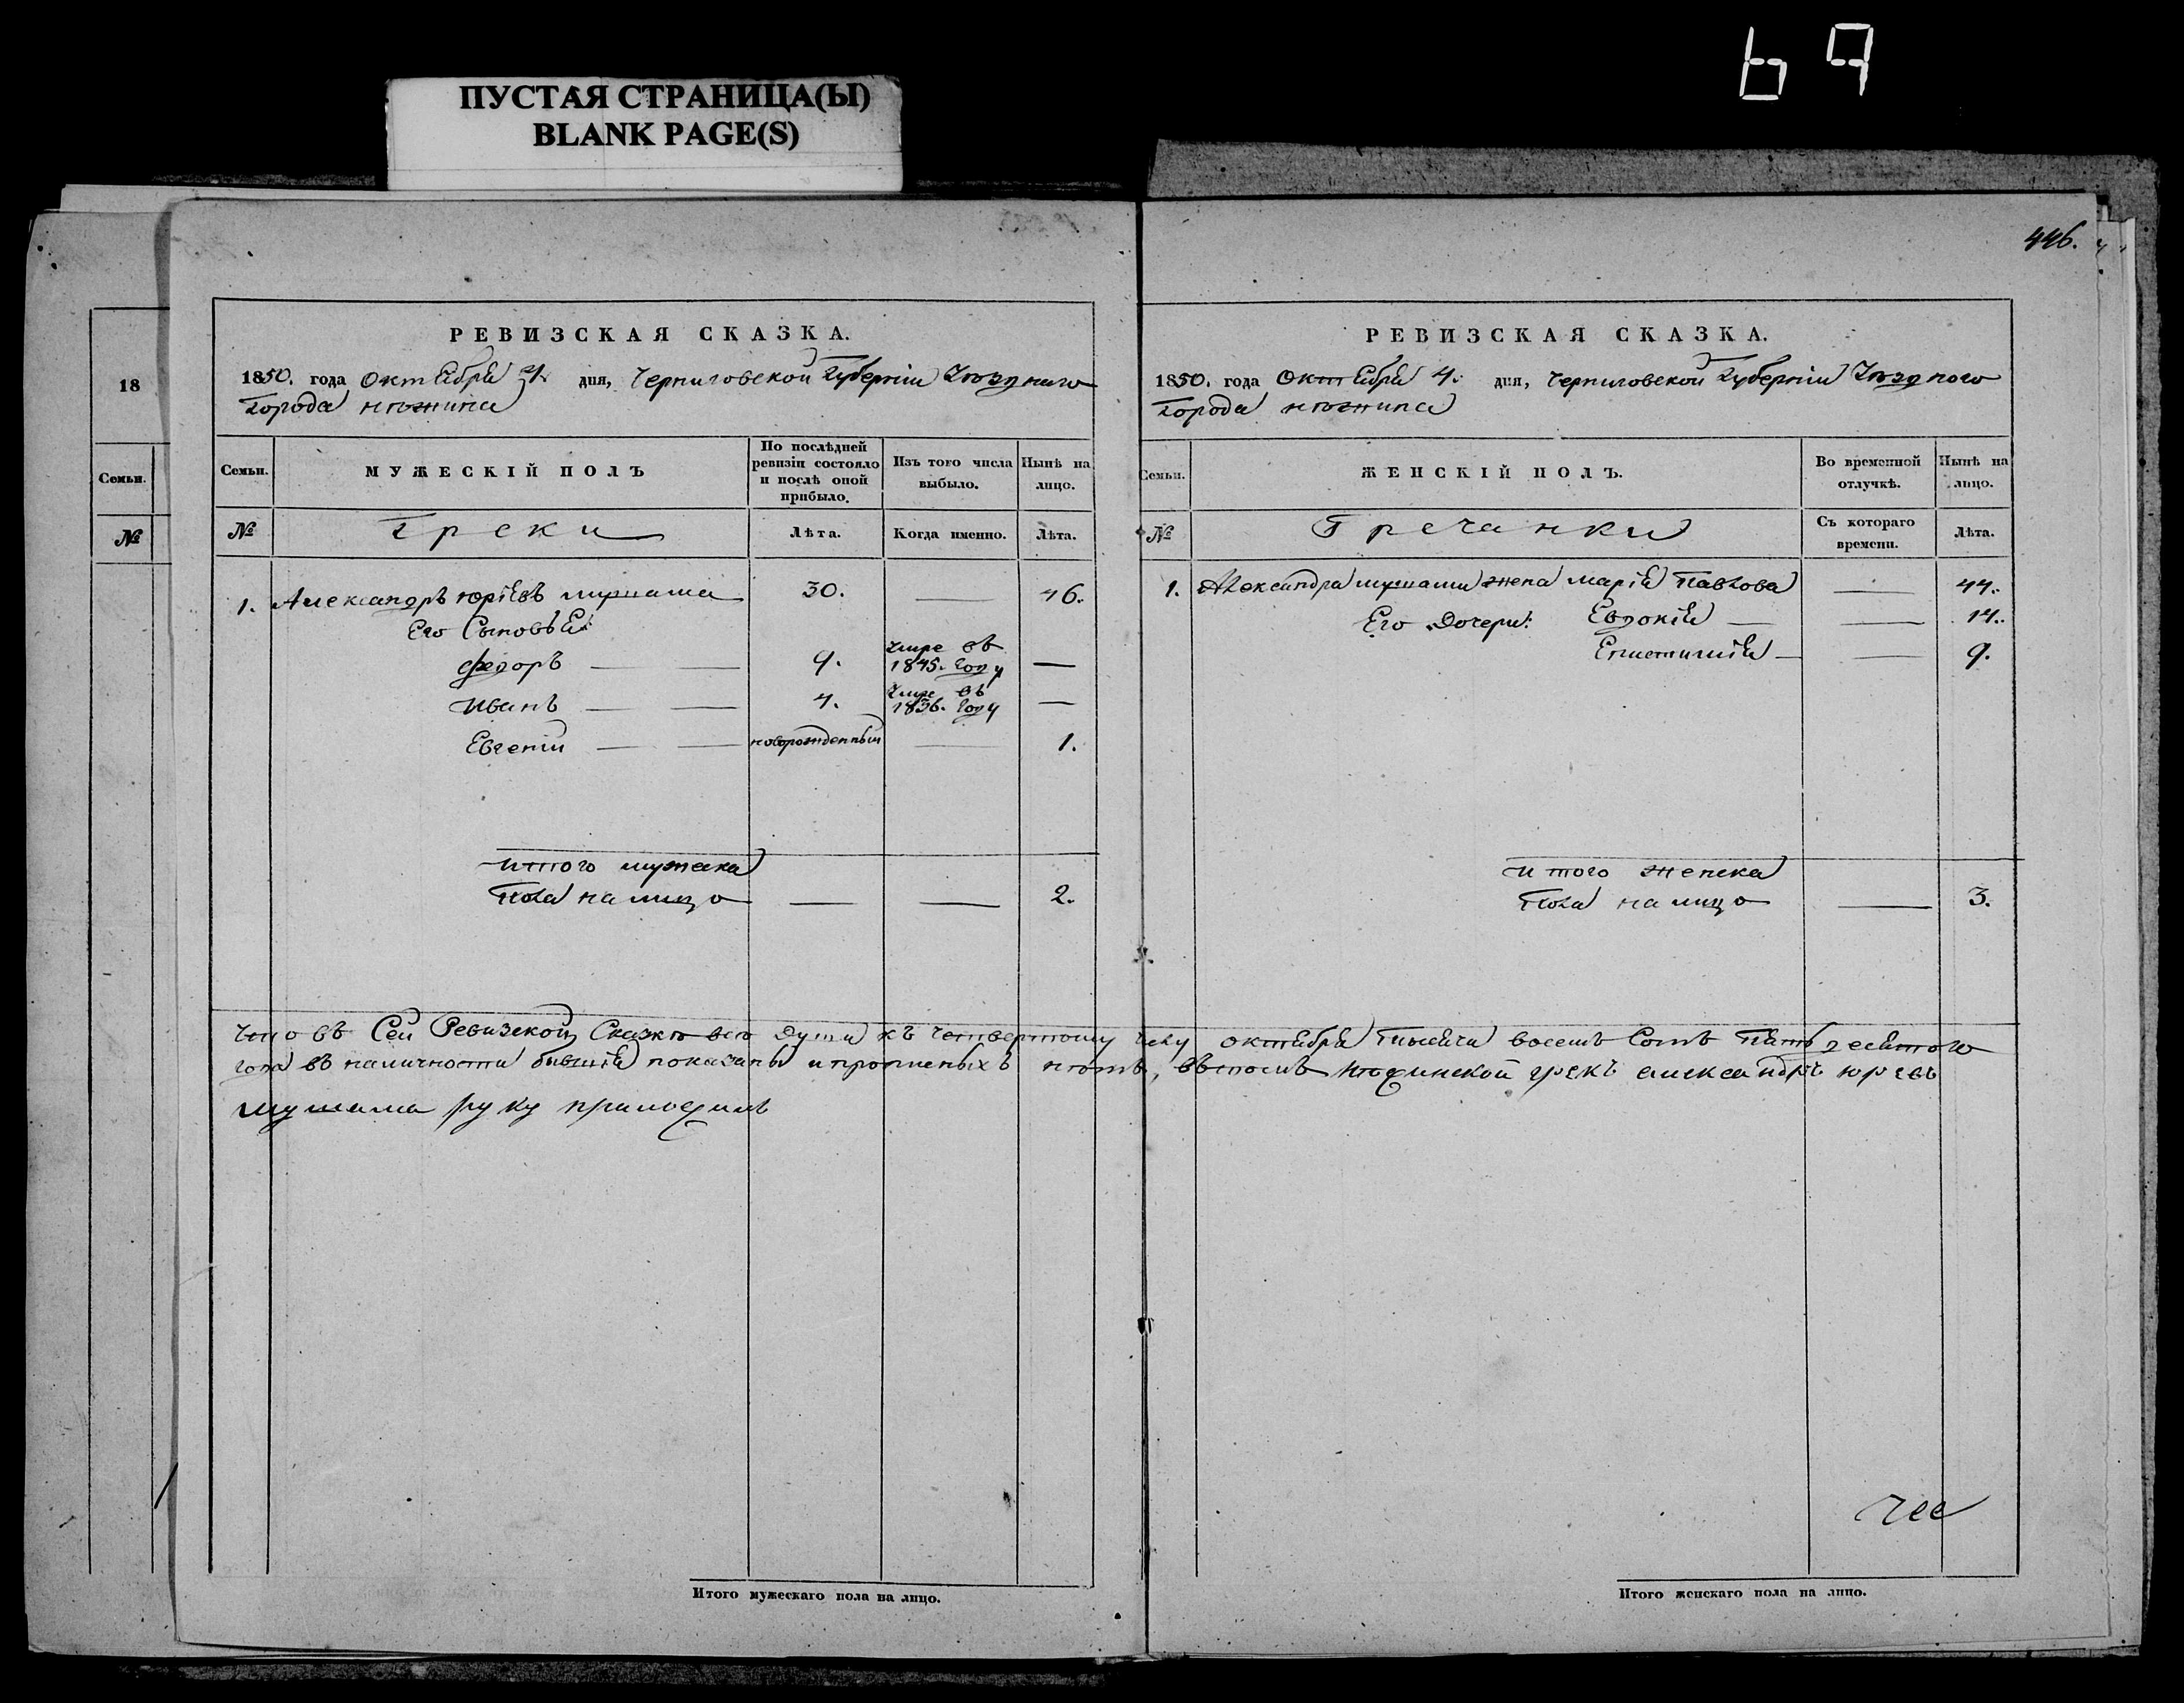 69
ПУСТАЯ СТРАНИЦА(Ы)
BLANK PAGE(S)
446.
18
Семьи.
№
РЕВИЗСКАЯ СКАЗКА.
1850. года Октября 4. дня, Черниговской Губерніи Уѣзднаго
Города Нѣжина
Семьи.
МУЖЕСКІЙ ПОЛЪ
По послѣдней ревизіи состояло и послѣ оной прибыло.
Изъ того числа выбыло.
Нынѣ на лицо.
№
Греки
Лѣта.
Когда именно.
Лѣта.
1. Александръ Юріевъ 30. — 46.
Его Сыновья:
Федоръ — — 9. Умре въ 1845. Году —
Иванъ — — 4. Умре въ 1836. Году —
Евгеній — — новорожденный — 1.
Итого мужска
Пола на лицо — — 2.
РЕВИЗСКАЯ СКАЗКА.
1850. года Октября 4. дня, Черниговской Губерніи Уѣзднаго
Города Нѣжина
Семьи.
ЖЕНСКІЙ ПОЛЪ.
Во временной отлучкѣ.
Нынѣ на лицо.
№
Гречанки
Съ котораго времени.
Лѣта.
1. Александра жена Марія Павлова — 44.
Его Дочери: Евдокія — — 14.
Епистимія — — 9.
Итого женска
Пола на лицо — 3.
Что въ Сей Ревизской Сказкѣ всѣ Души къ четвертому числу октября тысяча восемь Сотъ Пятьдесятого
года въ наличности бывшія показаны и прописныхъ нѣтъ, въ томъ Нѣжинской грекъ Александръ Юревъ
руку приложилъ
Итого мужескаго пола на лицо.
Итого женскаго пола на лицо.